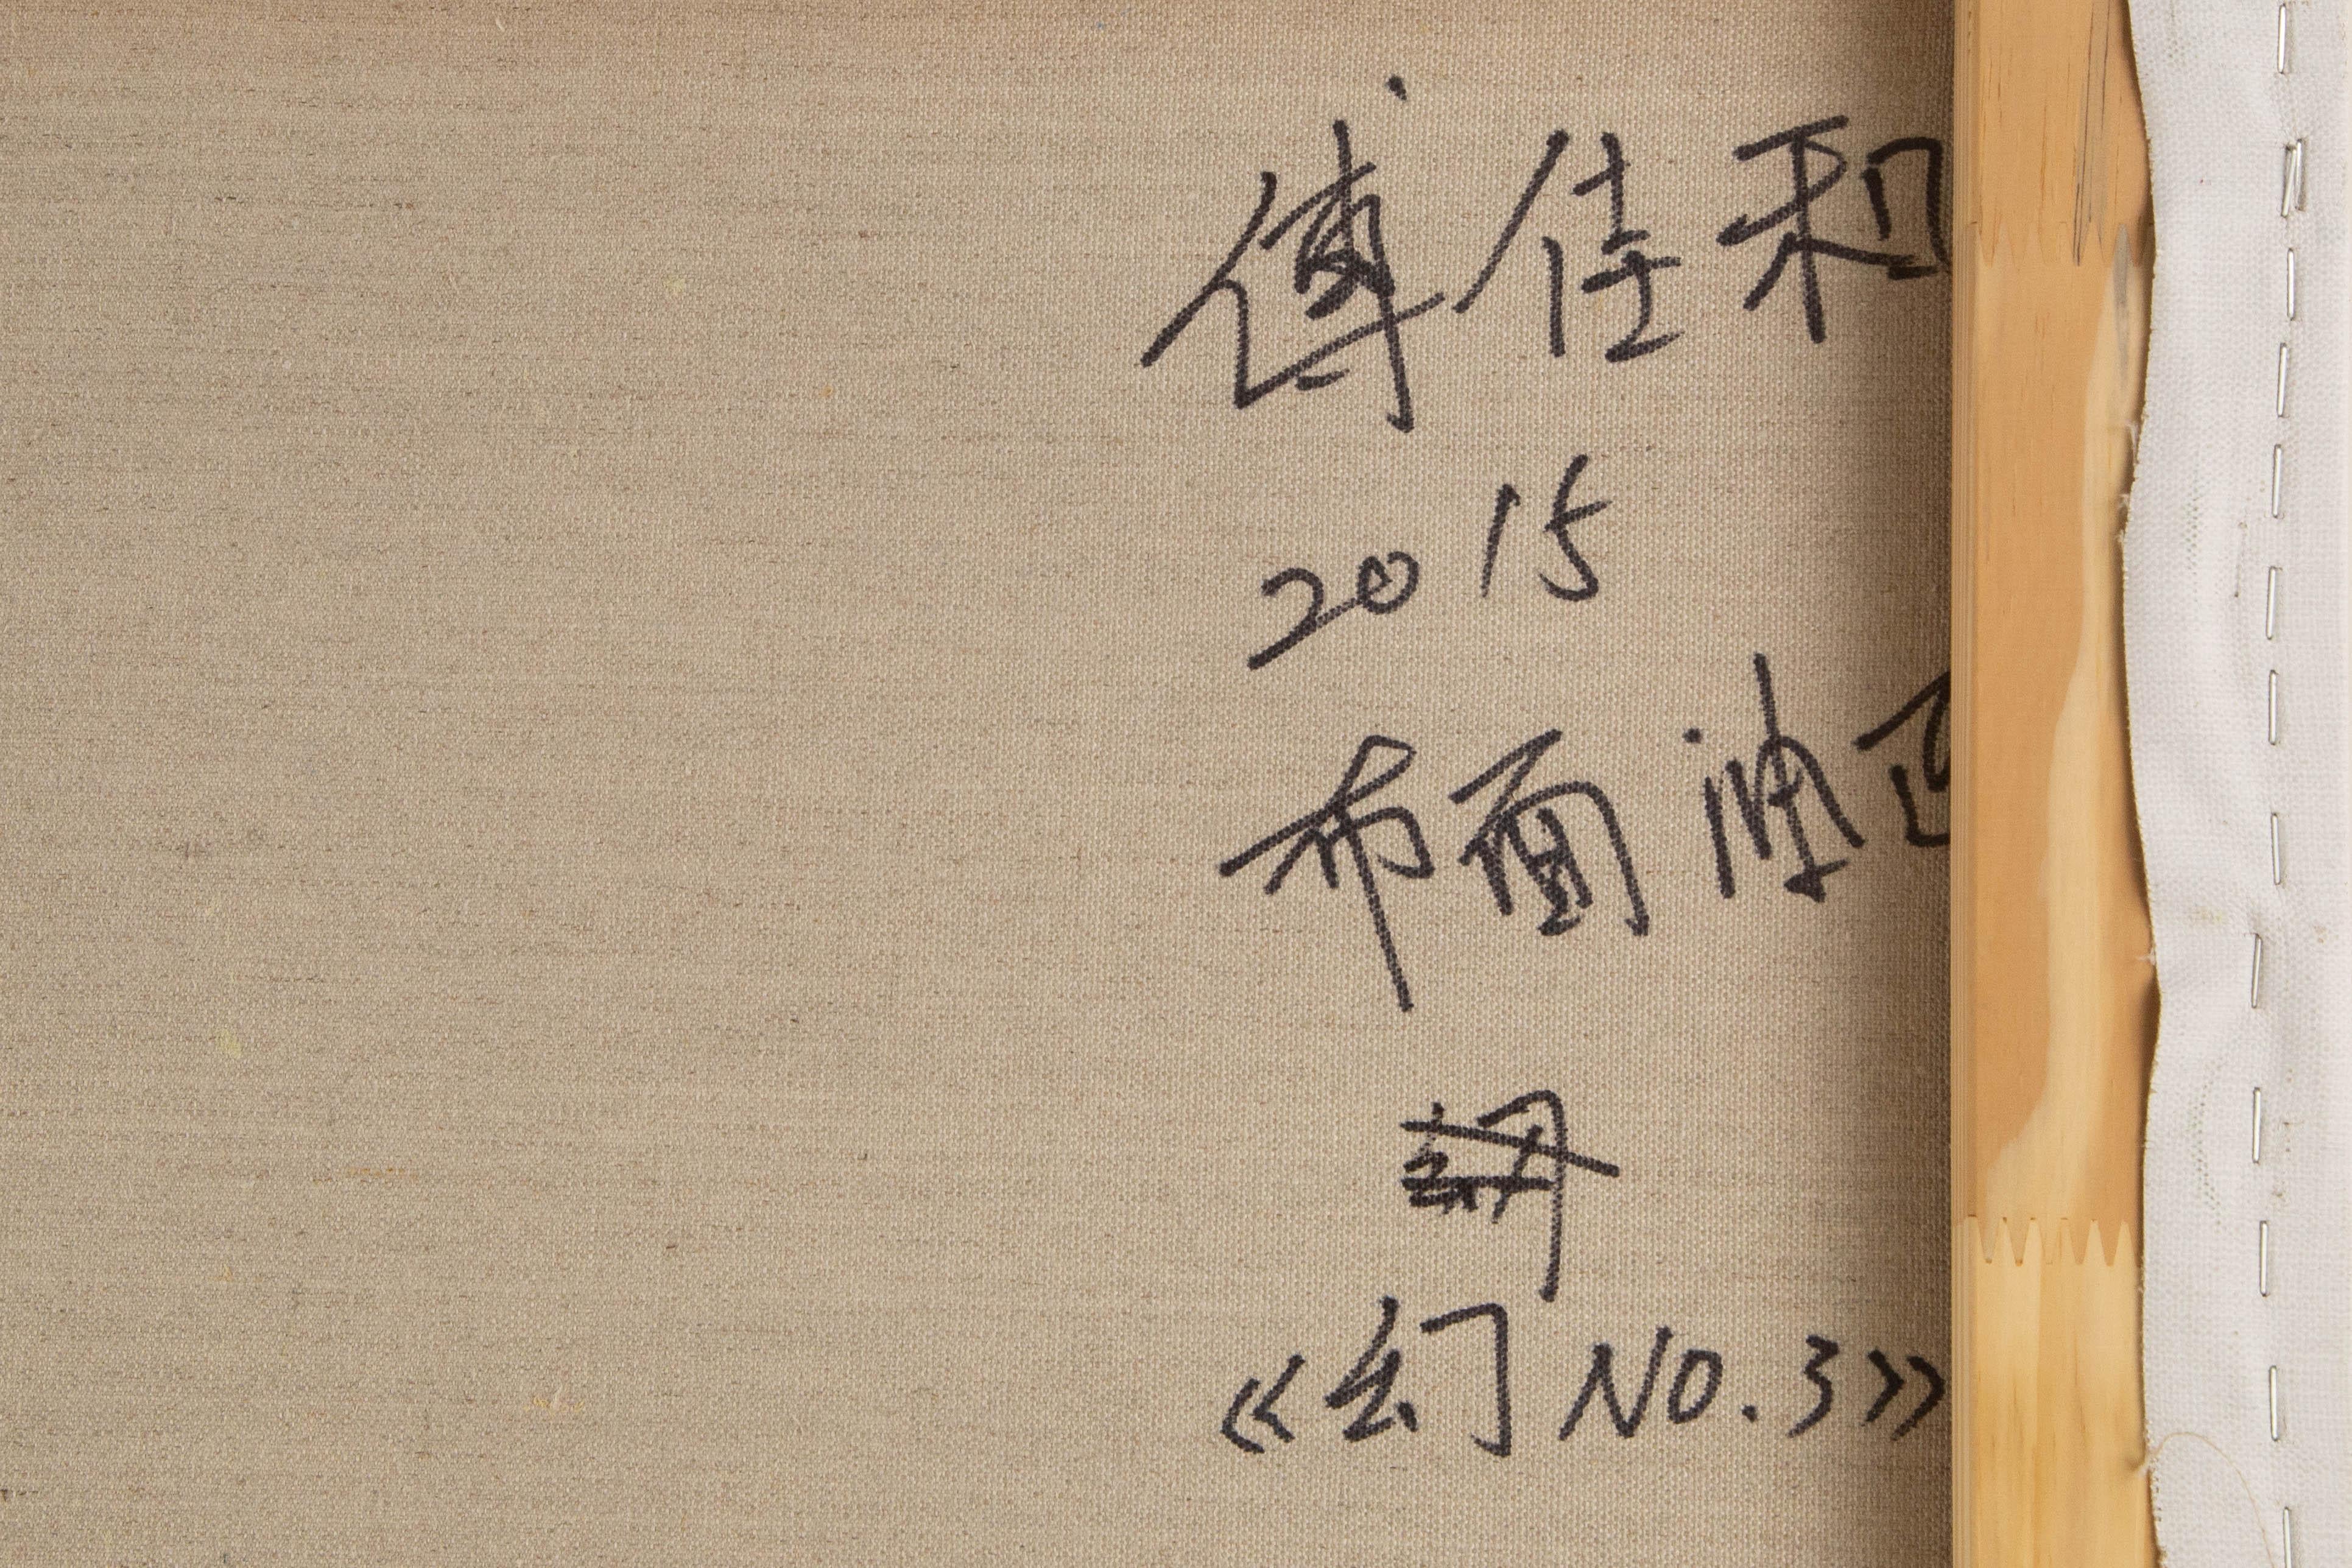 傅佳和
2015
布面油画
《幻 NO.3》